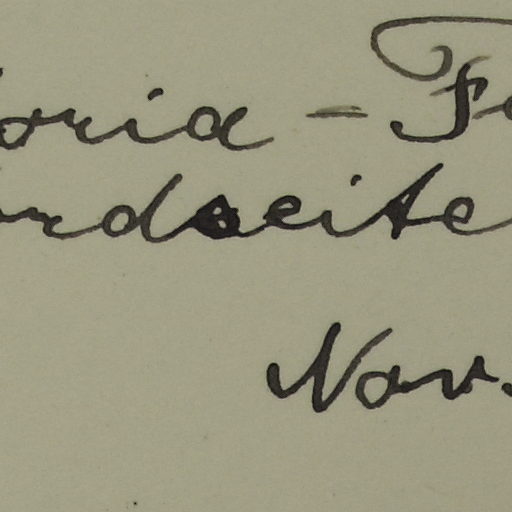 oria - Fa
ordseite
Nov.